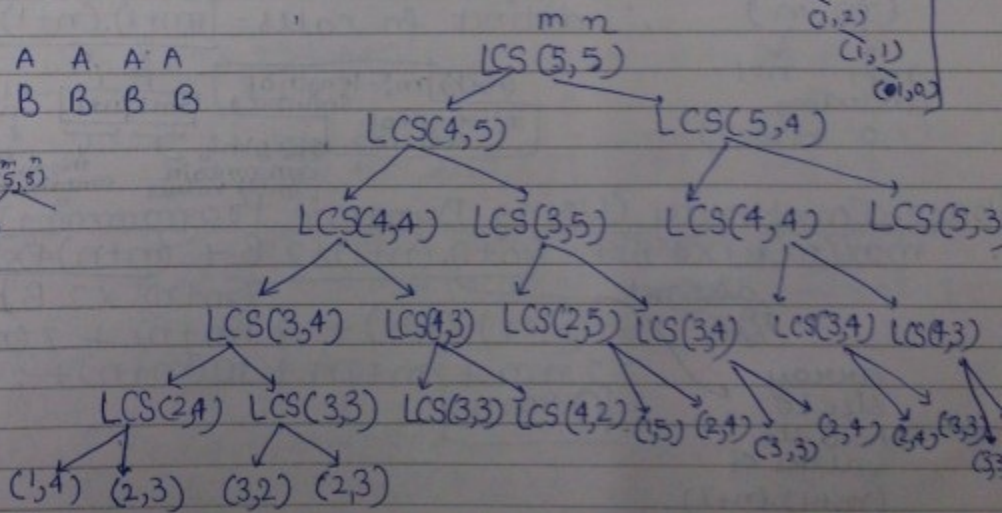 m n
(1,2)
A A A A LCS (5,5)
(1,1)
B B B B
LCS(4,5) LCS(5,4)
m n
5,5)
LCS(4,4) LCS(3,5) LCS(4,4) LCS(5,3
LCS(3,4) LCS(4,3) LCS(2,5) LCS(3,4) LCS(3,4) LCS(4,3)
LCS(2,4) LCS(3,3) LCS(3,3) LCS(4,2) (1,5) (2,4) (3,3) (2,4) (2,4) (3,3)
(1,4) (2,3) (3,2) (2,3)